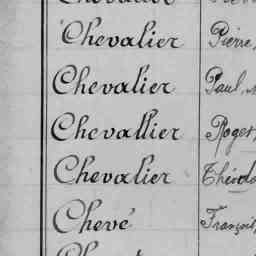 Chevalier Pierre,
Chevalier Paul,
Chevallier Roger,
Chevalier
Chevé François,